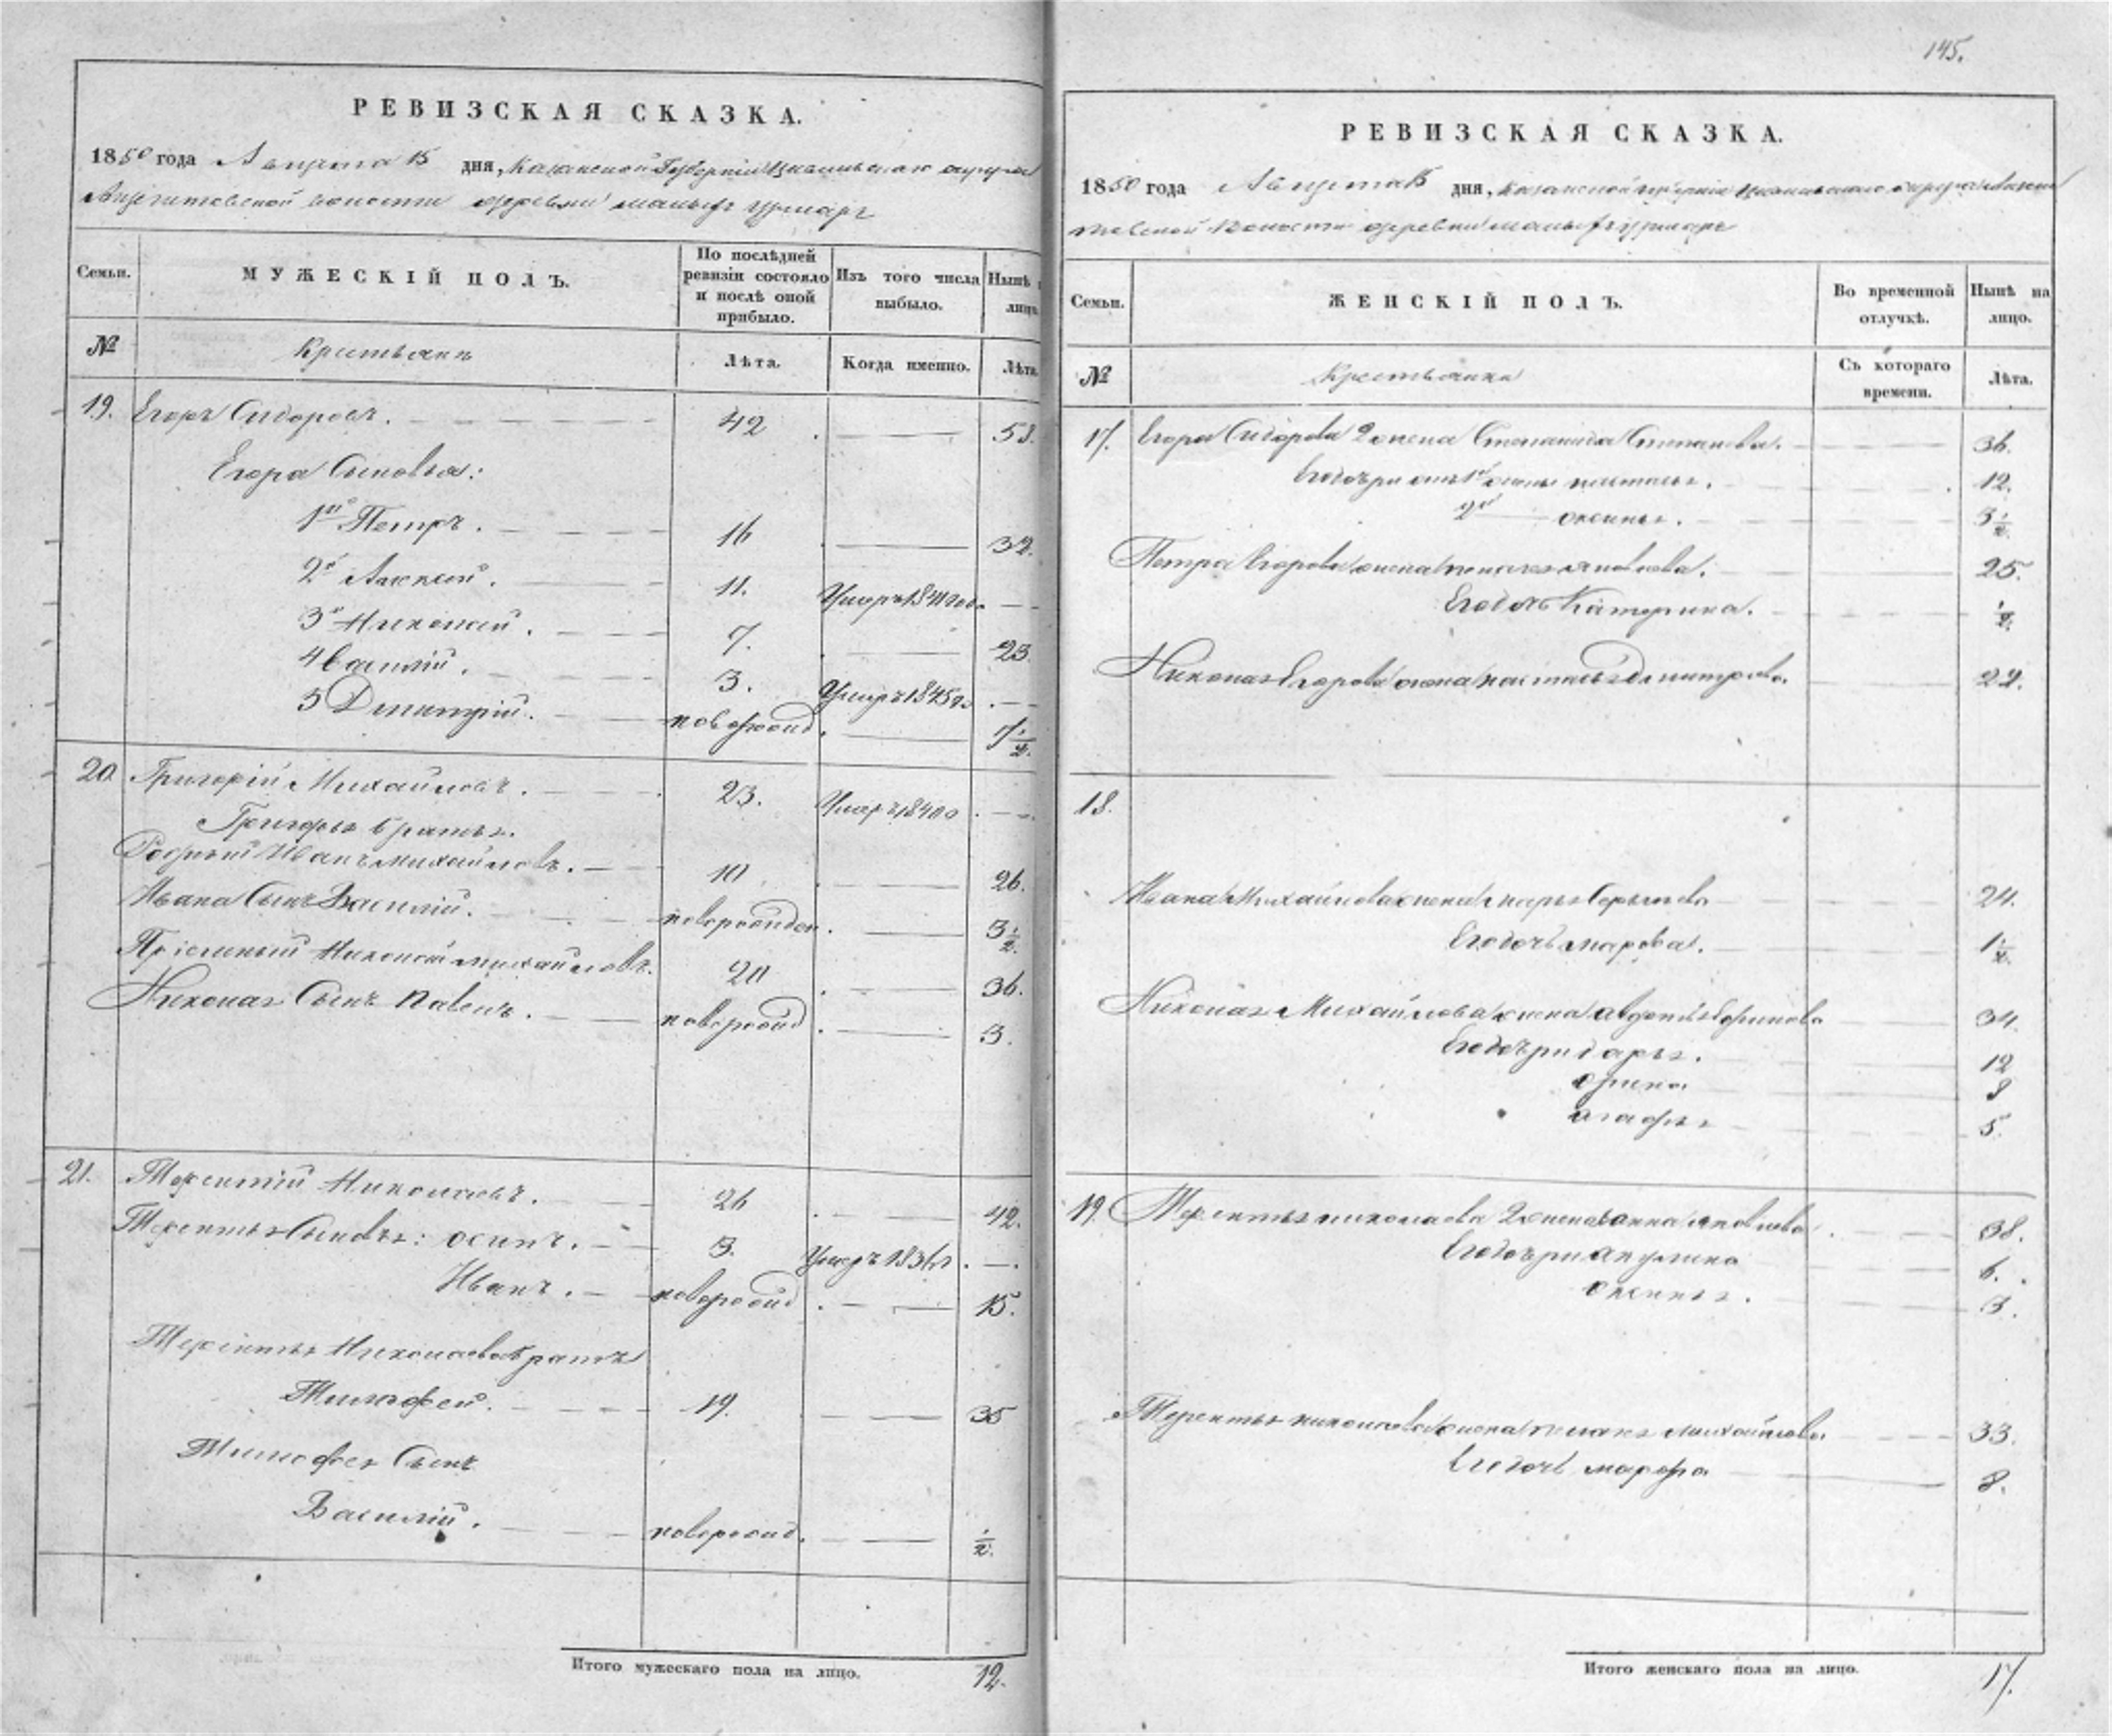 145.
РЕВИЗСКАЯ СКАЗКА.
1850 года Августа 15 дня, Казанской Губерніи Цивильскаго округа
волости деревни малыхъ
Семьи.
МУЖЕСКІЙ ПОЛЪ.
По послѣдней ревизіи состояло и послѣ оной прибыло.
Изъ того числа выбыло.
Нынѣ
лицо
№
Крестьянъ
Лѣта.
Когда именно.
Лѣта
19. Егоръ Сидоровъ. 42 58.
Егора Сыновья:
1й Петръ. 16 32.
2й Алексей. 11. Умеръ 1841 года
3й Николай. 7. 23
4 Василій. 3. Умеръ 1845 го
5 Дмитрій. новорожд. 7 1/2.
20. Григорій Михайловъ. 23. Умеръ 1840
Григорья братья.
Родный Иванъ Михайловъ. 10 26.
Ивана Сынъ Василій. новорожден. 3 1/2.
Пріемный Николай Михайловъ. 20 36.
Николая Сынъ Павелъ. новорожд. 3.
21. Терентий Николаевъ. 26 42.
Терентья Сыновья: осипъ. 3. Умеръ 1836
Иванъ. новорожд. 15.
Терентья Николаева братъ
Тимофей. 19. 35
Тимофея Сынъ
Василій. новорожд. 1/2.
Итого мужескаго пола на лицо. 12.
РЕВИЗСКАЯ СКАЗКА.
1850 года Августа 15 дня, Казанской губерніи Цивильскаго округа
волости деревни малыхъ
Семьи.
ЖЕНСКІЙ ПОЛЪ.
Во временной отлучкѣ.
Нынѣ на лицо.
№
Крестьянки
Съ котораго времени.
Лѣта.
17. Егора Сидорова 2 жена Степанида Степанова. 36.
Егодочери отъ 1й жены настасья. 12.
2й оксинья. 3 1/2
Петра Егорова жена яковлева. 25.
Егодочь Катерина. 1/2.
Николая Егорова жена настасья Дмитриева. 22.
18.
Ивана Михайлова жена марья 24.
Егодочь марфа. 1 1/2.
Николая Михайлова жена авдотья 34.
Егодочери дарья. 12
орина 8
агафья 5.
19. Терентья николаева 2 жена анна яковлева. 38.
Егодочери акулина 6.
оксинья. 3.
Терентья николаева жена михайлова 33.
Егодочь марфа 8.
Итого женскаго пола на лицо. 17.